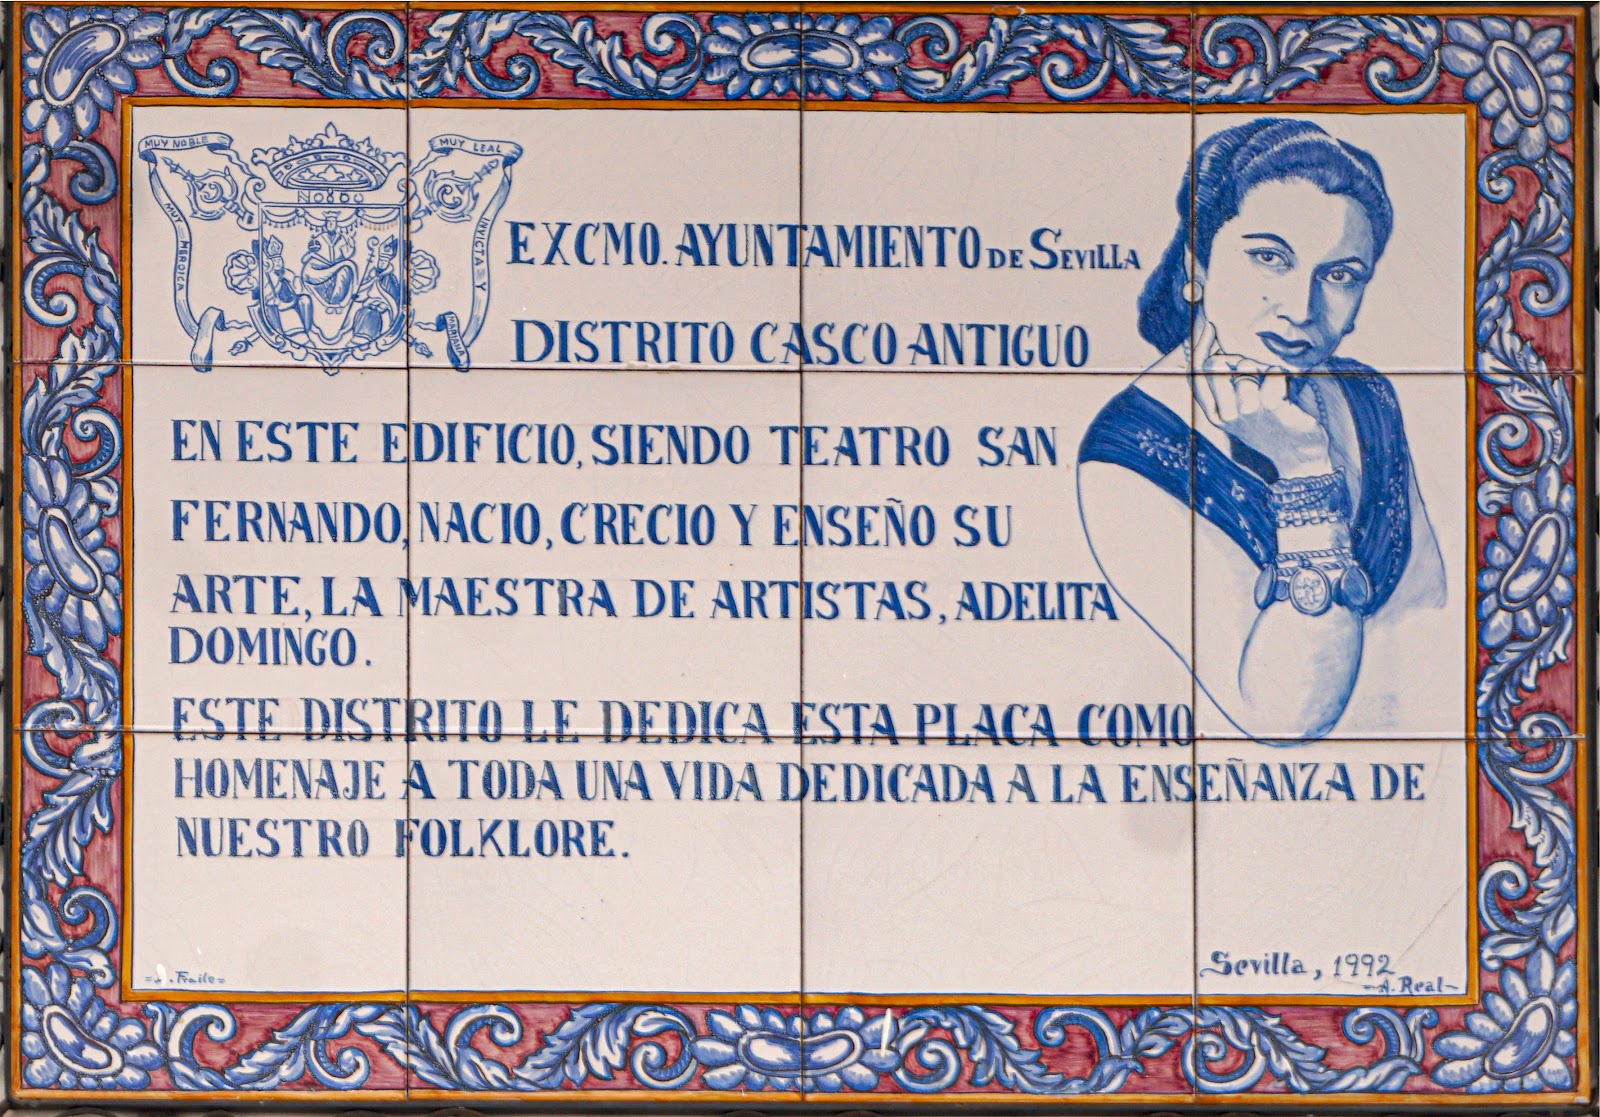 MUY NOBLE
MUY LEAL
MUY HEROICA
INVICTA Y
MARIANA
NO8DO
EXCMO. AYUNTAMIENTO DE SEVILLA
DISTRITO CASCO ANTIGUO
EN ESTE EDIFICIO, SIENDO TEATRO SAN
FERNANDO, NACIO, CRECIO Y ENSEÑO SU
ARTE, LA MAESTRA DE ARTISTAS, ADELITA
DOMINGO.
ESTE DISTRITO LE DEDICA ESTA PLACA COMO
HOMENAJE A TODA UNA VIDA DEDICADA A LA ENSEÑANZA DE
NUESTRO FOLKLORE.
Sevilla, 1992
A. Real
Fraile